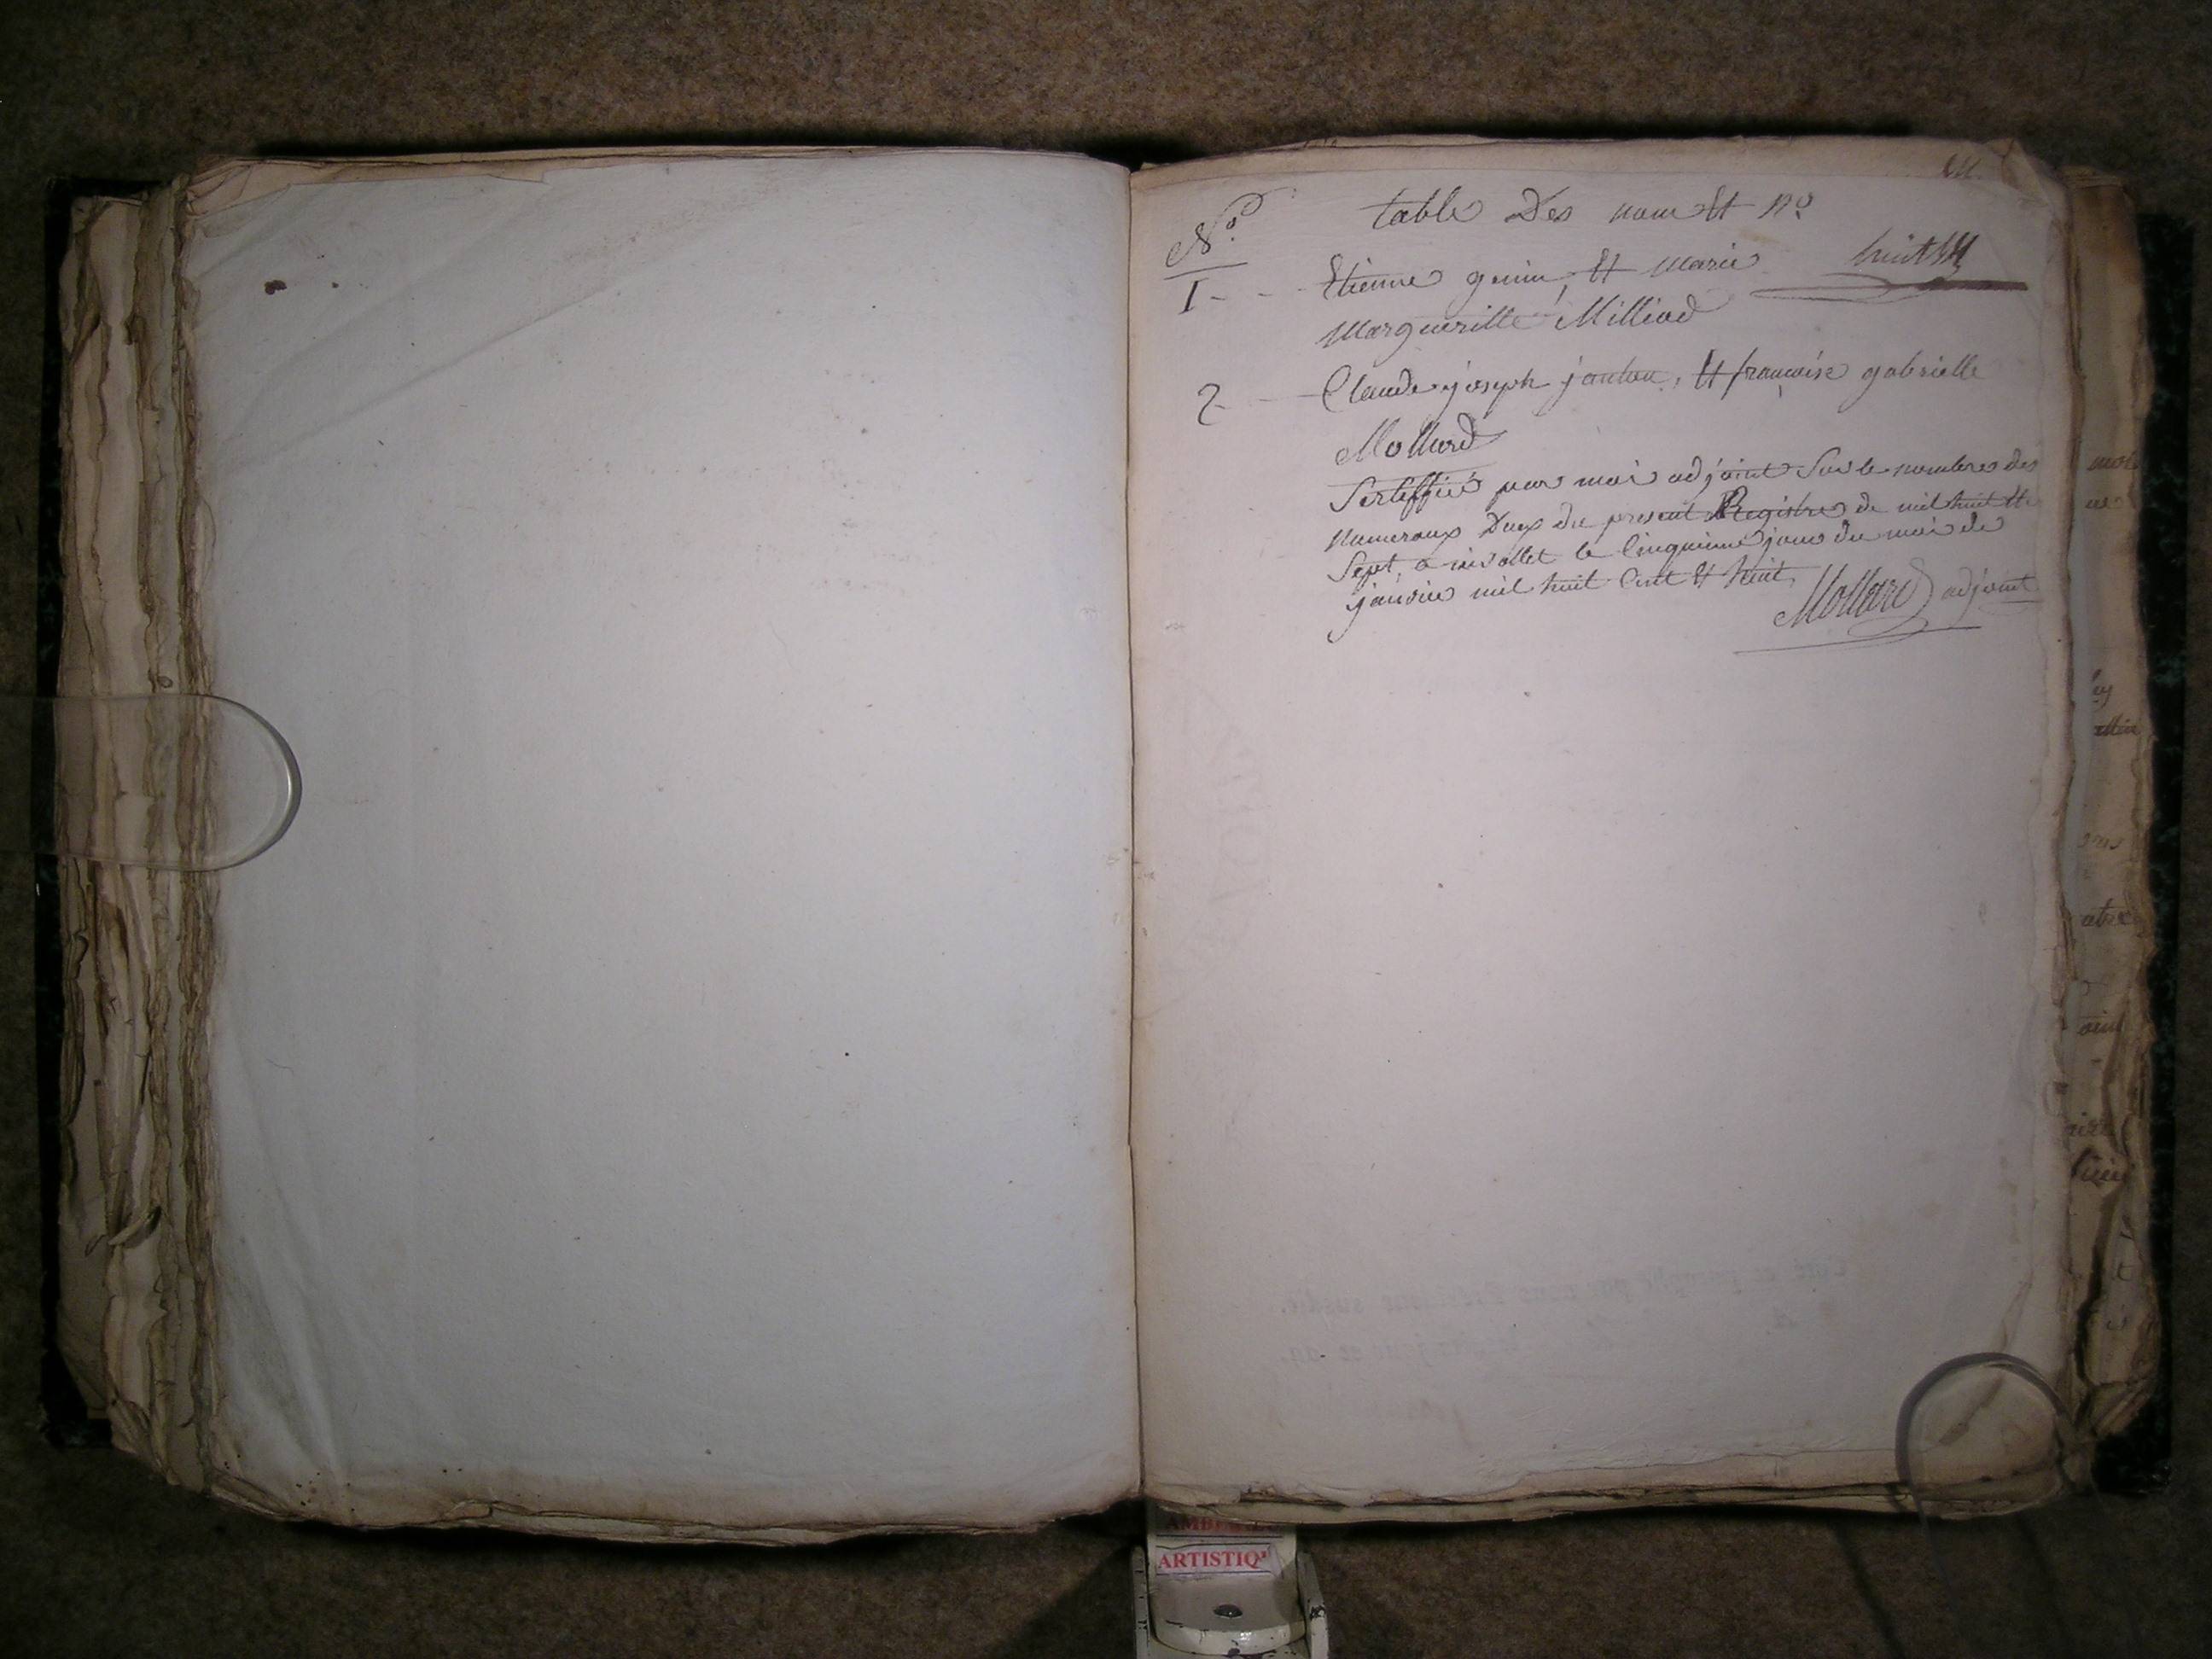 table Des nom Et nº
Nº
1 - - Etienne genin, Et marie
Margueritte Milliod
2 - Claude joseph janton, Et francoise gabrielle
Mollard
Sertiffié par moi adjoint Sur le nombres des
numeraux Duex du present Registre de mil huit Et
Sept, a le Cinquieme jour du mois de
janvier mil huit Cent Et huit,
Mollard adjoint
ARTISTIQ